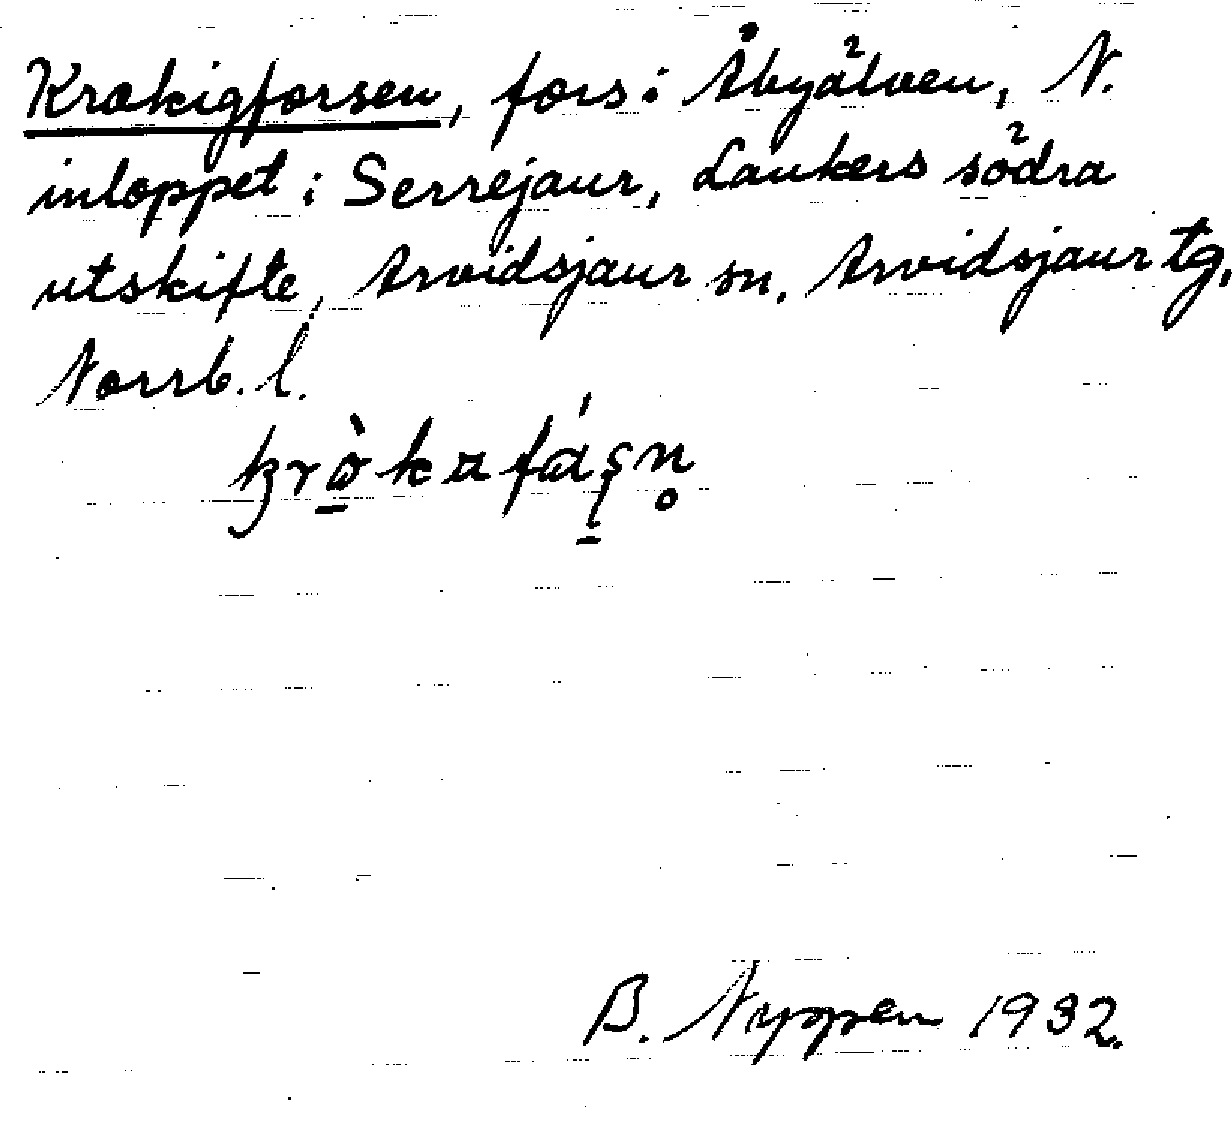 Krokigforsen, fors i Åbyälven, N.
inloppet i Serrejaur, Laukers södra
utskifte, Arvidsjaur sn, Arvidsjaur tg,
Norrb. l.
B. Nyppen 1932.